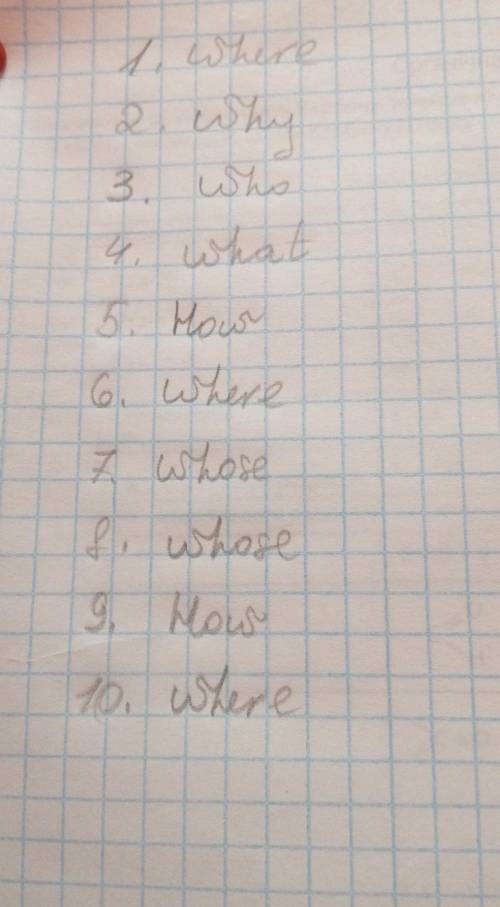 1. Where
2. Why
3. Who
4. What
5. How
6. Where
7. Whose
8. Whose
9. How
10. Where